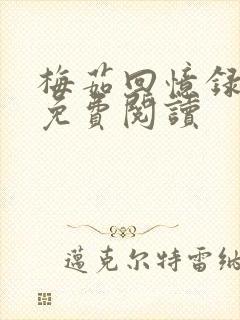 梅茹回憶錄
免費閱讀
邁克尔特雷纳